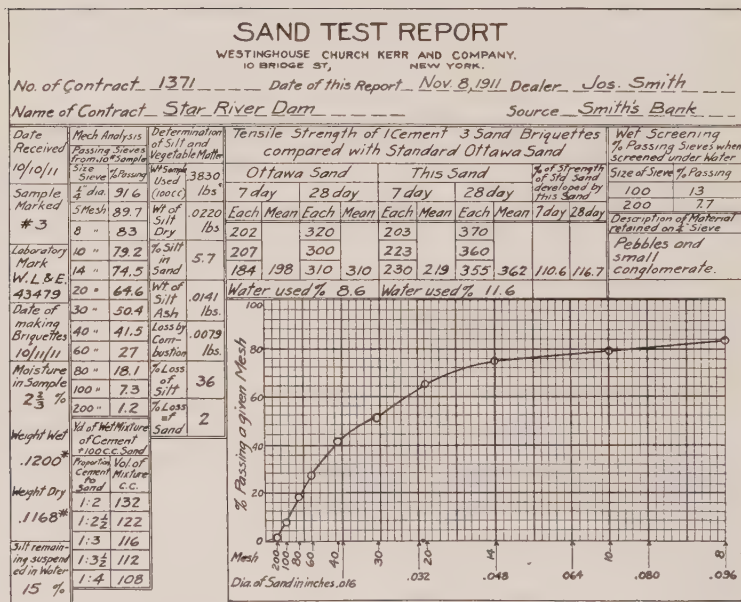 SAND TEST REPORT
WESTINGHOUSE CHURCH KERR AND COMPANY.
10 BRIDGE ST, NEW YORK.
No. of Contract 1371 Date of this Report Nov. 8, 1911 Dealer Jos. Smith
Name of Contract Star River Dam Source Smith's Bank
Date Received
10/10/11
Sample Marked
#3
Laboratory Mark
W.L & E.
43479
Date of making Briquettes
10/11/11
Moisture in Sample
2 2/3 %
Weight Wet
.1200#
Weight Dry
.1168#
Silt remaining suspended in Water
15 %
Mech Analysis
Passing Sieves from 10# Sample
Size Sieve % Passing
1/4" dia. 91.6
5 Mesh 89.7
8 " 83
10 " 79.2
14 " 74.5
20 " 64.6
30 " 50.4
40 " 41.5
60 " 27
80 " 18.1
100 " 7.3
200 " 1.2
Yd of Wet Mixture of Cement + 100 C.C. Sand
Proportion Cement to Sand Vol. of Mixture C.C.
1:2 132
1:2 1/2 122
1:3 116
1:3 1/2 112
1:4 108
Determination of Silt and Vegetable Matter
Wt Sample Used (100cc) .3830 lbs
Wt of Silt Dry .0220 lbs
% Silt in Sand 5.7
Wt of Silt Ash .0141 lbs.
Loss by Combustion .0079 lbs.
% Loss of Silt 36
% Loss of Sand 2
Tensile Strength of 1 Cement 3 Sand Briquettes
compared with Standard Ottawa Sand
Ottawa Sand This Sand % of Strength of Std Sand developed by this Sand
7 day 28 day 7 day 28 day
Each Mean Each Mean Each Mean Each Mean 7 day 28 day
202 320 203 370
207 300 223 360
184 198 310 310 230 219 355 362 110.6 116.7
Water used % 8.6 Water used % 11.6
Wet Screening
% Passing Sieves when screened under Water
Size of Sieve % Passing
100 13
200 7.7
Description of Material retained on 1/4" Sieve
Pebbles and small conglomerate.
% Passing a given Mesh
100
80
60
40
20
0
Mesh 200 100 80 60 40 30 20 14 10 8
Dia. of Sand in inches .016 .032 .048 064 .080 .096